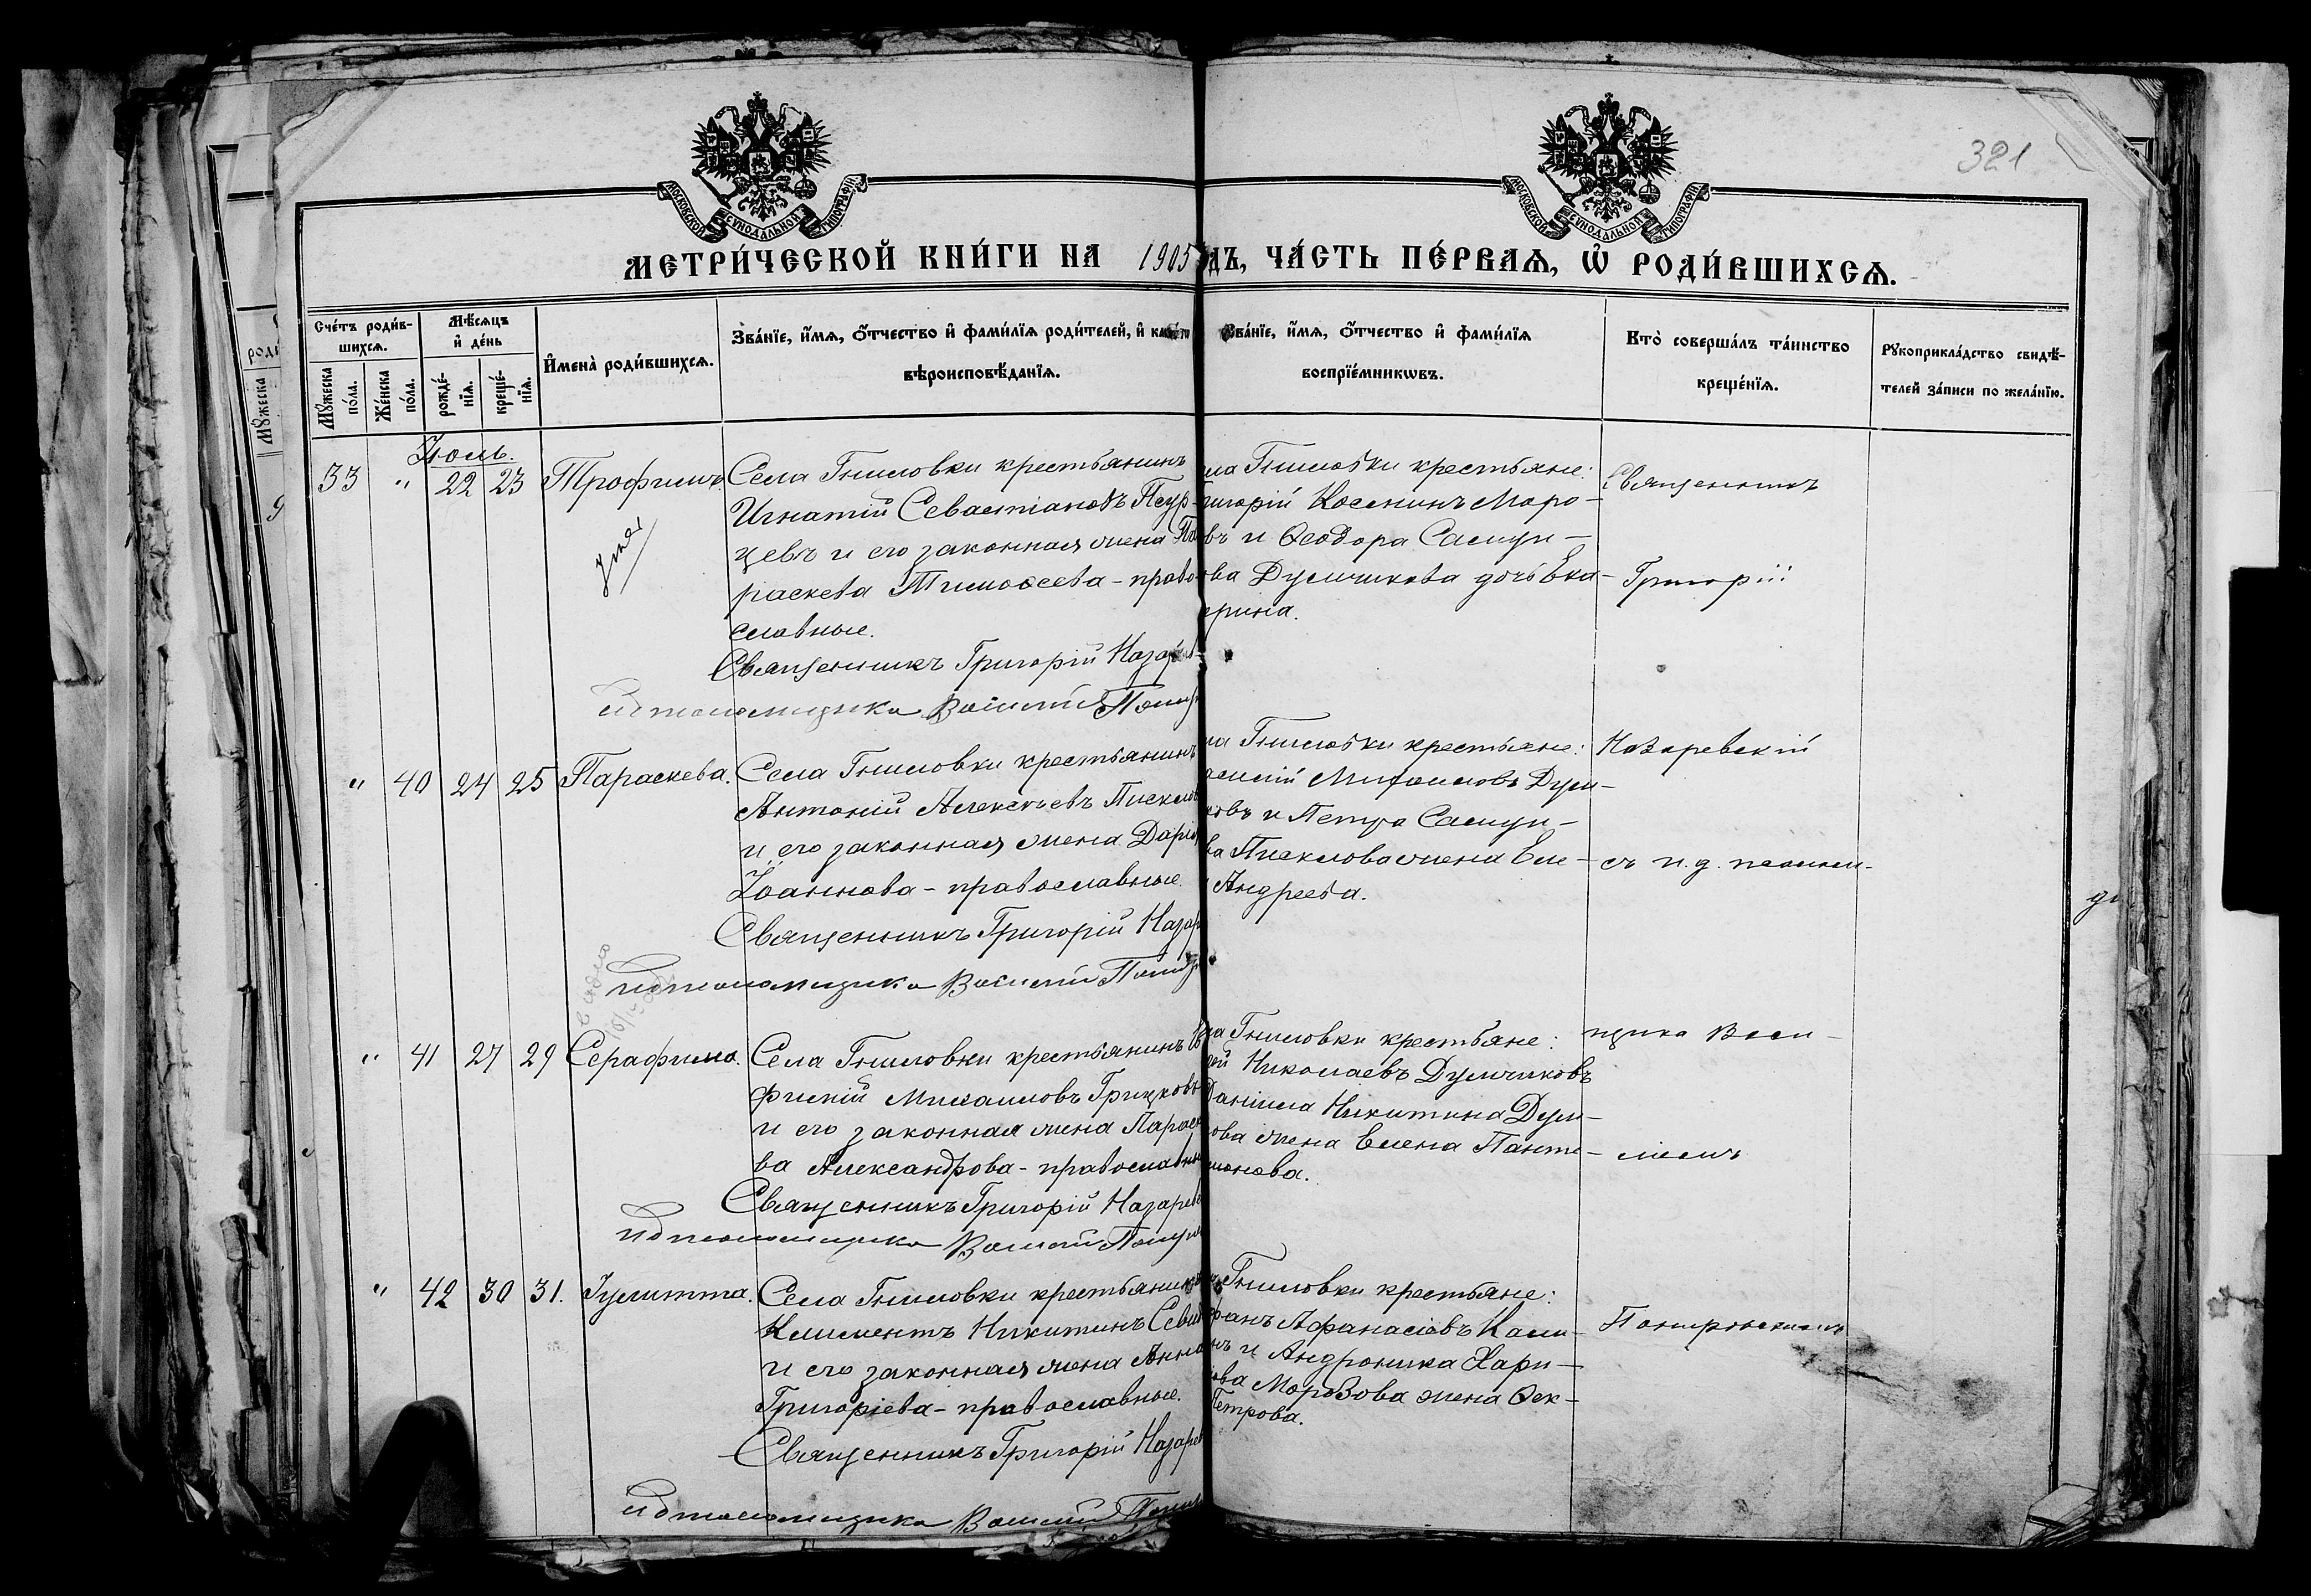 321
МОСКОВСКОЙ СѴНОДАЛЬНОЙ ТИПОГРАФІИ
МОСКОВСКОЙ СѴНОДАЛЬНОЙ ТИПОГРАФІИ
МЕТРИ́ЧЕСКОЙ КНИ́ГИ НА 1905
ДЪ, ЧА́СТЬ ПЕ́РВАѦ, Ѡ҆ РОДИ́ВШИХСѦ.
Сче́тъ роди́в-
шихсѧ.
Мꙋ́жеска по́ла.
Же́нска по́ла.
Мѣ́сѧцъ
и҆ де́нь
рожде́-
нїѧ.
креще́-
нїѧ.
И҆мена̀ роди́вшихсѧ.
Зва́нїе, и҆́мѧ, ѻ҆́тчество и҆ фами́лїѧ роди́телей, и҆
вѣроисповѣ́данїѧ.
Зва́нїе, и҆́мѧ, ѻ҆́тчество и҆ фами́лїѧ
воспрїе́мникѡвъ.
Кто̀ соверша́лъ та́инство
креще́нїѧ.
Рꙋкоприкла́дство свидѣ́-
телей за́писи по жела́нїю.
Іюль.
33 " 22 23 Трофимъ.
Села Гниловки крестьянинъ
Игнатій Севастіановъ Псур-
цевъ и его законная жена Па
раскева Тимоѳеева - право-
славные.
Священникъ Григорій Назар
псаломщика Василій
ла Гниловки крестьяне:
ригорій Косьминъ Моро-
въ и Ѳеодора Самуи-
ова Думчикова дочь Ека-
ерина.
Священникъ
Григорій
" 40 24 25 Параскева.
Села Гниловки крестьянинъ
Антоній Алексѣевъ Писклов
и его законная жена Дарія
Іоаннова - православные.
Священникъ Григорій Назар
псаломщика Василій
ла Гниловки крестьяне:
Михаиловъ Дум-
ковъ и Петра Самуи-
ва Писклова жена Еле-
Андреева.
Назаревскій
съ и. д. псалом-
" 41 27 29 Серафима.
Села Гниловки крестьянинъ Ев
фимій Михаиловъ Грицковъ
и его законная жена Параске
ва Александрова - православны
Священникъ Григорій Назарев
псаломщика Василій
ла Гниловки крестьяне:
ей Николаевъ Думчиковъ
Даніила Никитина Дум-
ова жена Елена Панте-
монова.
щика Васи-
ліемъ
" 42 30 31. Іулитта.
Села Гниловки крестьянинъ
Климентъ Никитинъ
и его законная жена Анна
Григоріева - православные.
Священникъ Григорій Назарев
псаломщика Василій
Гниловки крестьяне:
фанъ Афанасіевъ Касм-
нъ и Андроника Хари-
ова Морозова жена Ѳек-
Петрова.